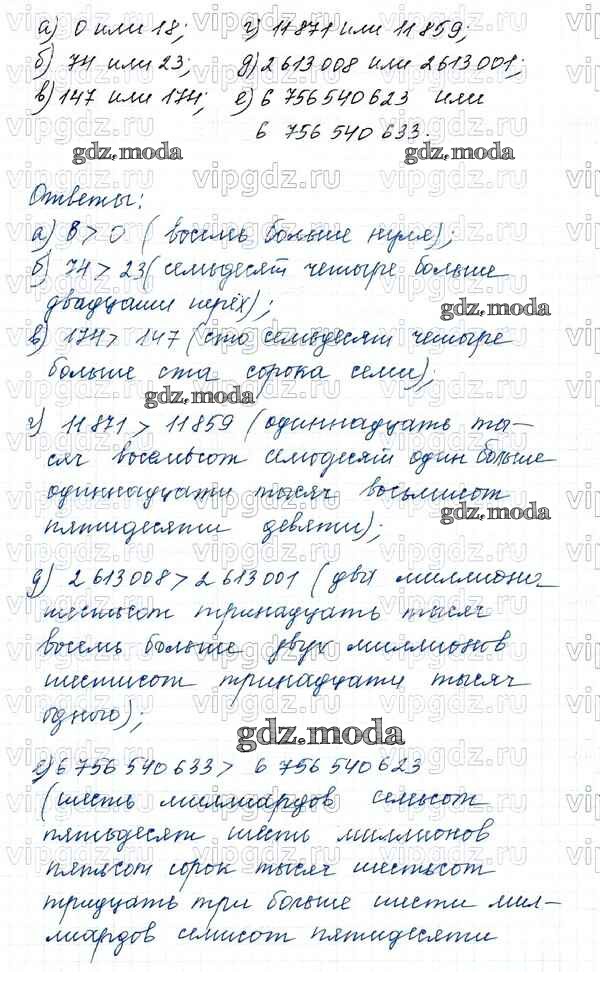 а) 0 или 18; г) 11871 или 11859;
б) 74 или 23; д) 2613008 или 2613001;
в) 147 или 174; е) 6 756 540 623 или
6 756 540 633.
gdz.moda gdz.moda
Ответы:
а) 8 > 0 (восемь больше нуля);
б) 74 > 23 (семьдесят четыре больше
двадцати трёх);
gdz.moda
в) 174 > 147 (сто семьдесят четыре
больше ста сорока семи);
gdz.moda
г) 11871 > 11859 (одиннадцать ты-
сяч восемьсот семьдесят один больше
одиннадцати тысяч восьмисот
gdz.moda
пятидесяти девяти);
д) 2 613 008 > 2 613 001 (два миллиона
шестьсот тринадцать тысяч
восемь больше двух миллионов
шестисот тринадцати тысяч
одного);
gdz.moda
е) 6 756 540 633 > 6 756 540 623
(шесть миллиардов семьсот
пятьдесят шесть миллионов
пятьсот сорок тысяч шестьсот
тридцать три больше шести мил-
лиардов семисот пятидесяти
vipgdz.ru